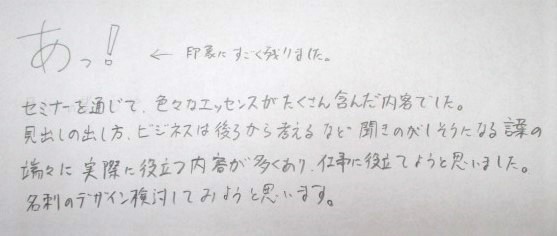 あっ! ← 印象にすごく残りました。
セミナーを通じて、色々なエッセンスがたくさん含んだ内容でした。
見出しの出し方、ビジネスは後ろから考えるなど聞きのがしそうになる言葉の
端々に実際に役立つ内容が多くあり、仕事に役立てようと思いました。
名刺のデザイン検討してみようと思います。